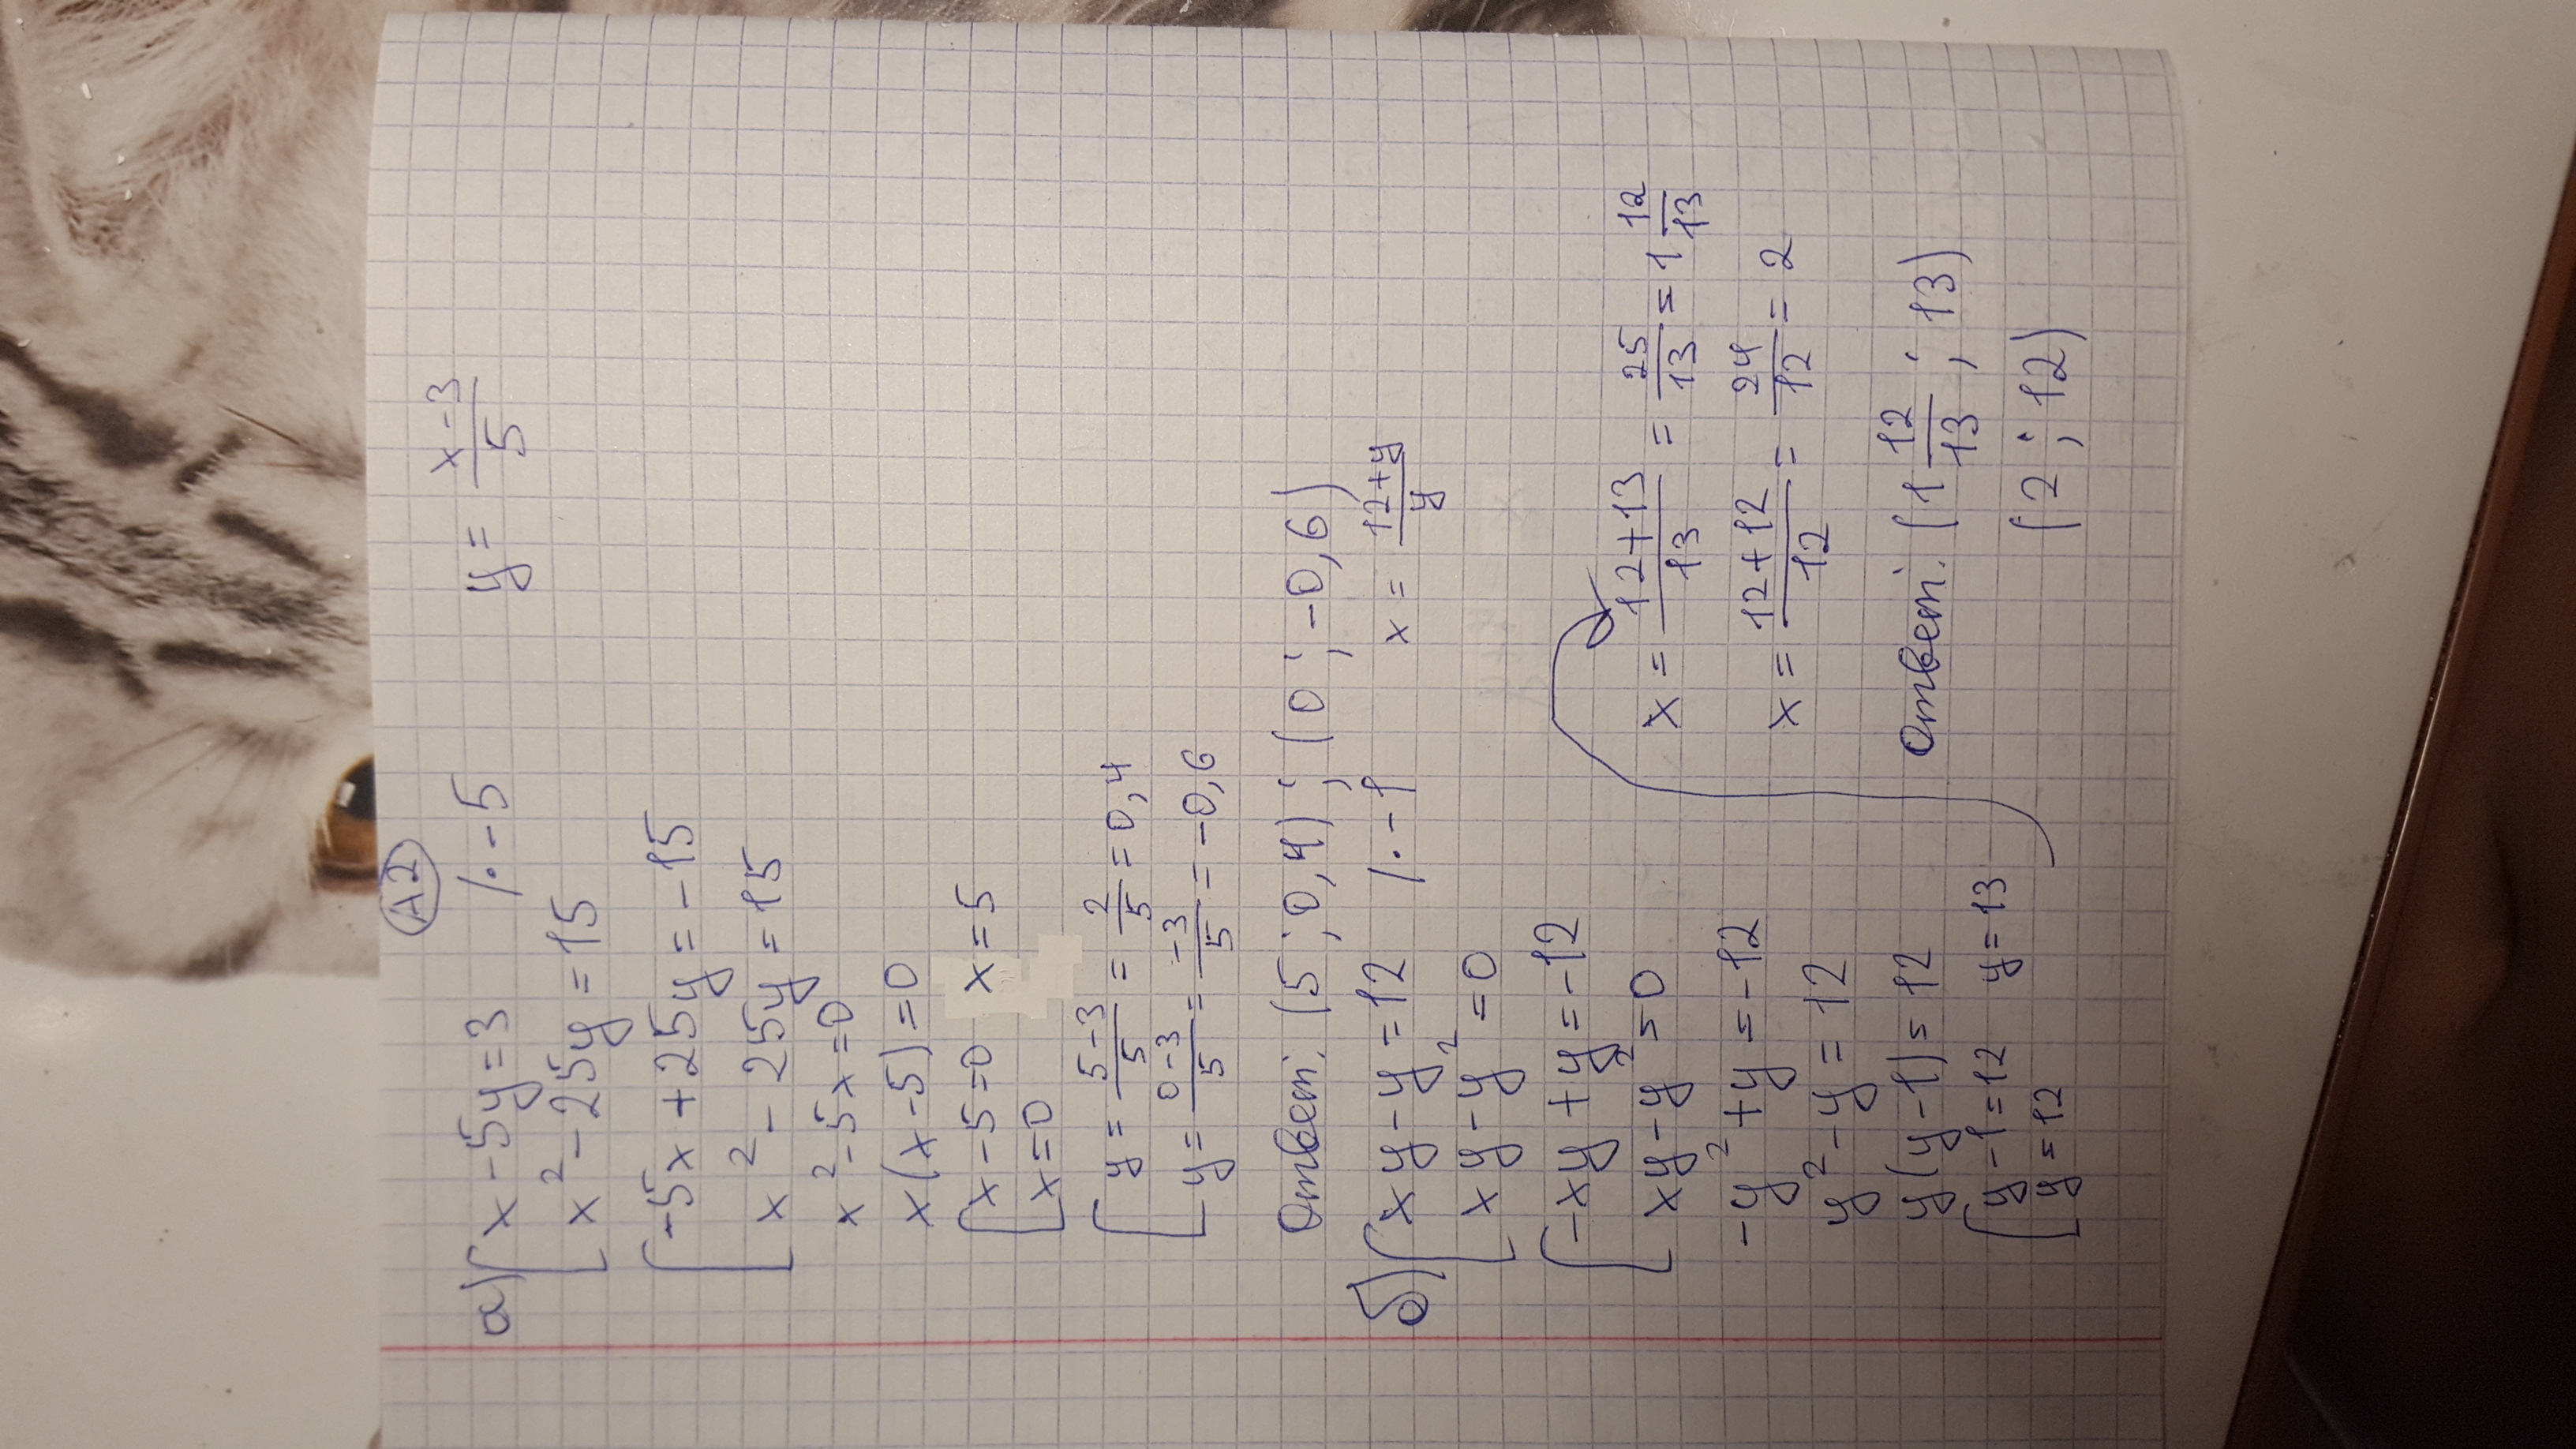 A2
а) x - 5y = 3 /· -5 y = (x-3)/5
x² - 25y = 15
-5x + 25y = -15
x² - 25y = 15
x² - 5x = 0
x(x - 5) = 0
x - 5 = 0 x = 5
x = 0
y = (5-3)/5 = 2/5 = 0,4
y = (0-3)/5 = -3/5 = -0,6
Ответ: (5; 0,4); (0; -0,6)
б) xy - y = 12 /· -1 x = (12+y)/y
xy - y² = 0
-xy + y = -12
xy - y² = 0
-y² + y = -12
y² - y = 12
y(y - 1) = 12
y - 1 = 12 y = 13
y = 12
x = (12+13)/13 = 25/13 = 1 12/13
x = (12+12)/12 = 24/12 = 2
Ответ: (1 12/13; 13)
(2; 12)